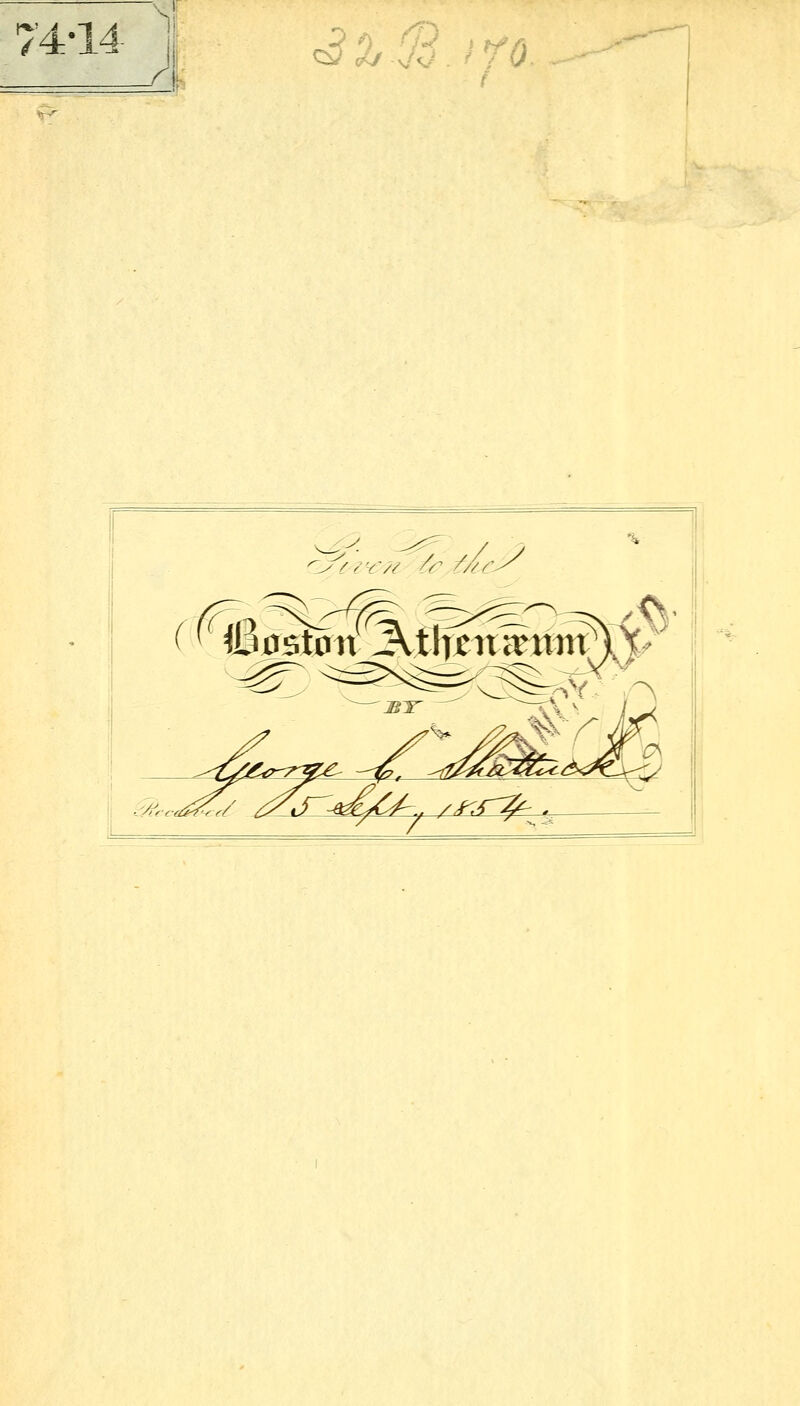 74·14
32.B.170.
Given to the
Boston Athenæum
BY
George C. Shattuck
Received 15 Sept, 1854.